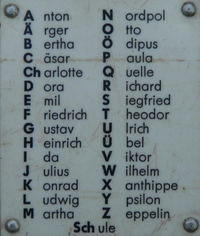 Anton
Ärger
Bertha
Cäsar
Charlotte
Dora
Emil
Friedrich
Gustav
Heinrich
Ida
Julius
Konrad
Ludwig
Martha
Nordpol
Otto
Ödipus
Paula
Quelle
Richard
Siegfried
Theodor
Ulrich
Übel
Viktor
Wilhelm
Xanthippe
Ypsilon
Zeppelin
Schule